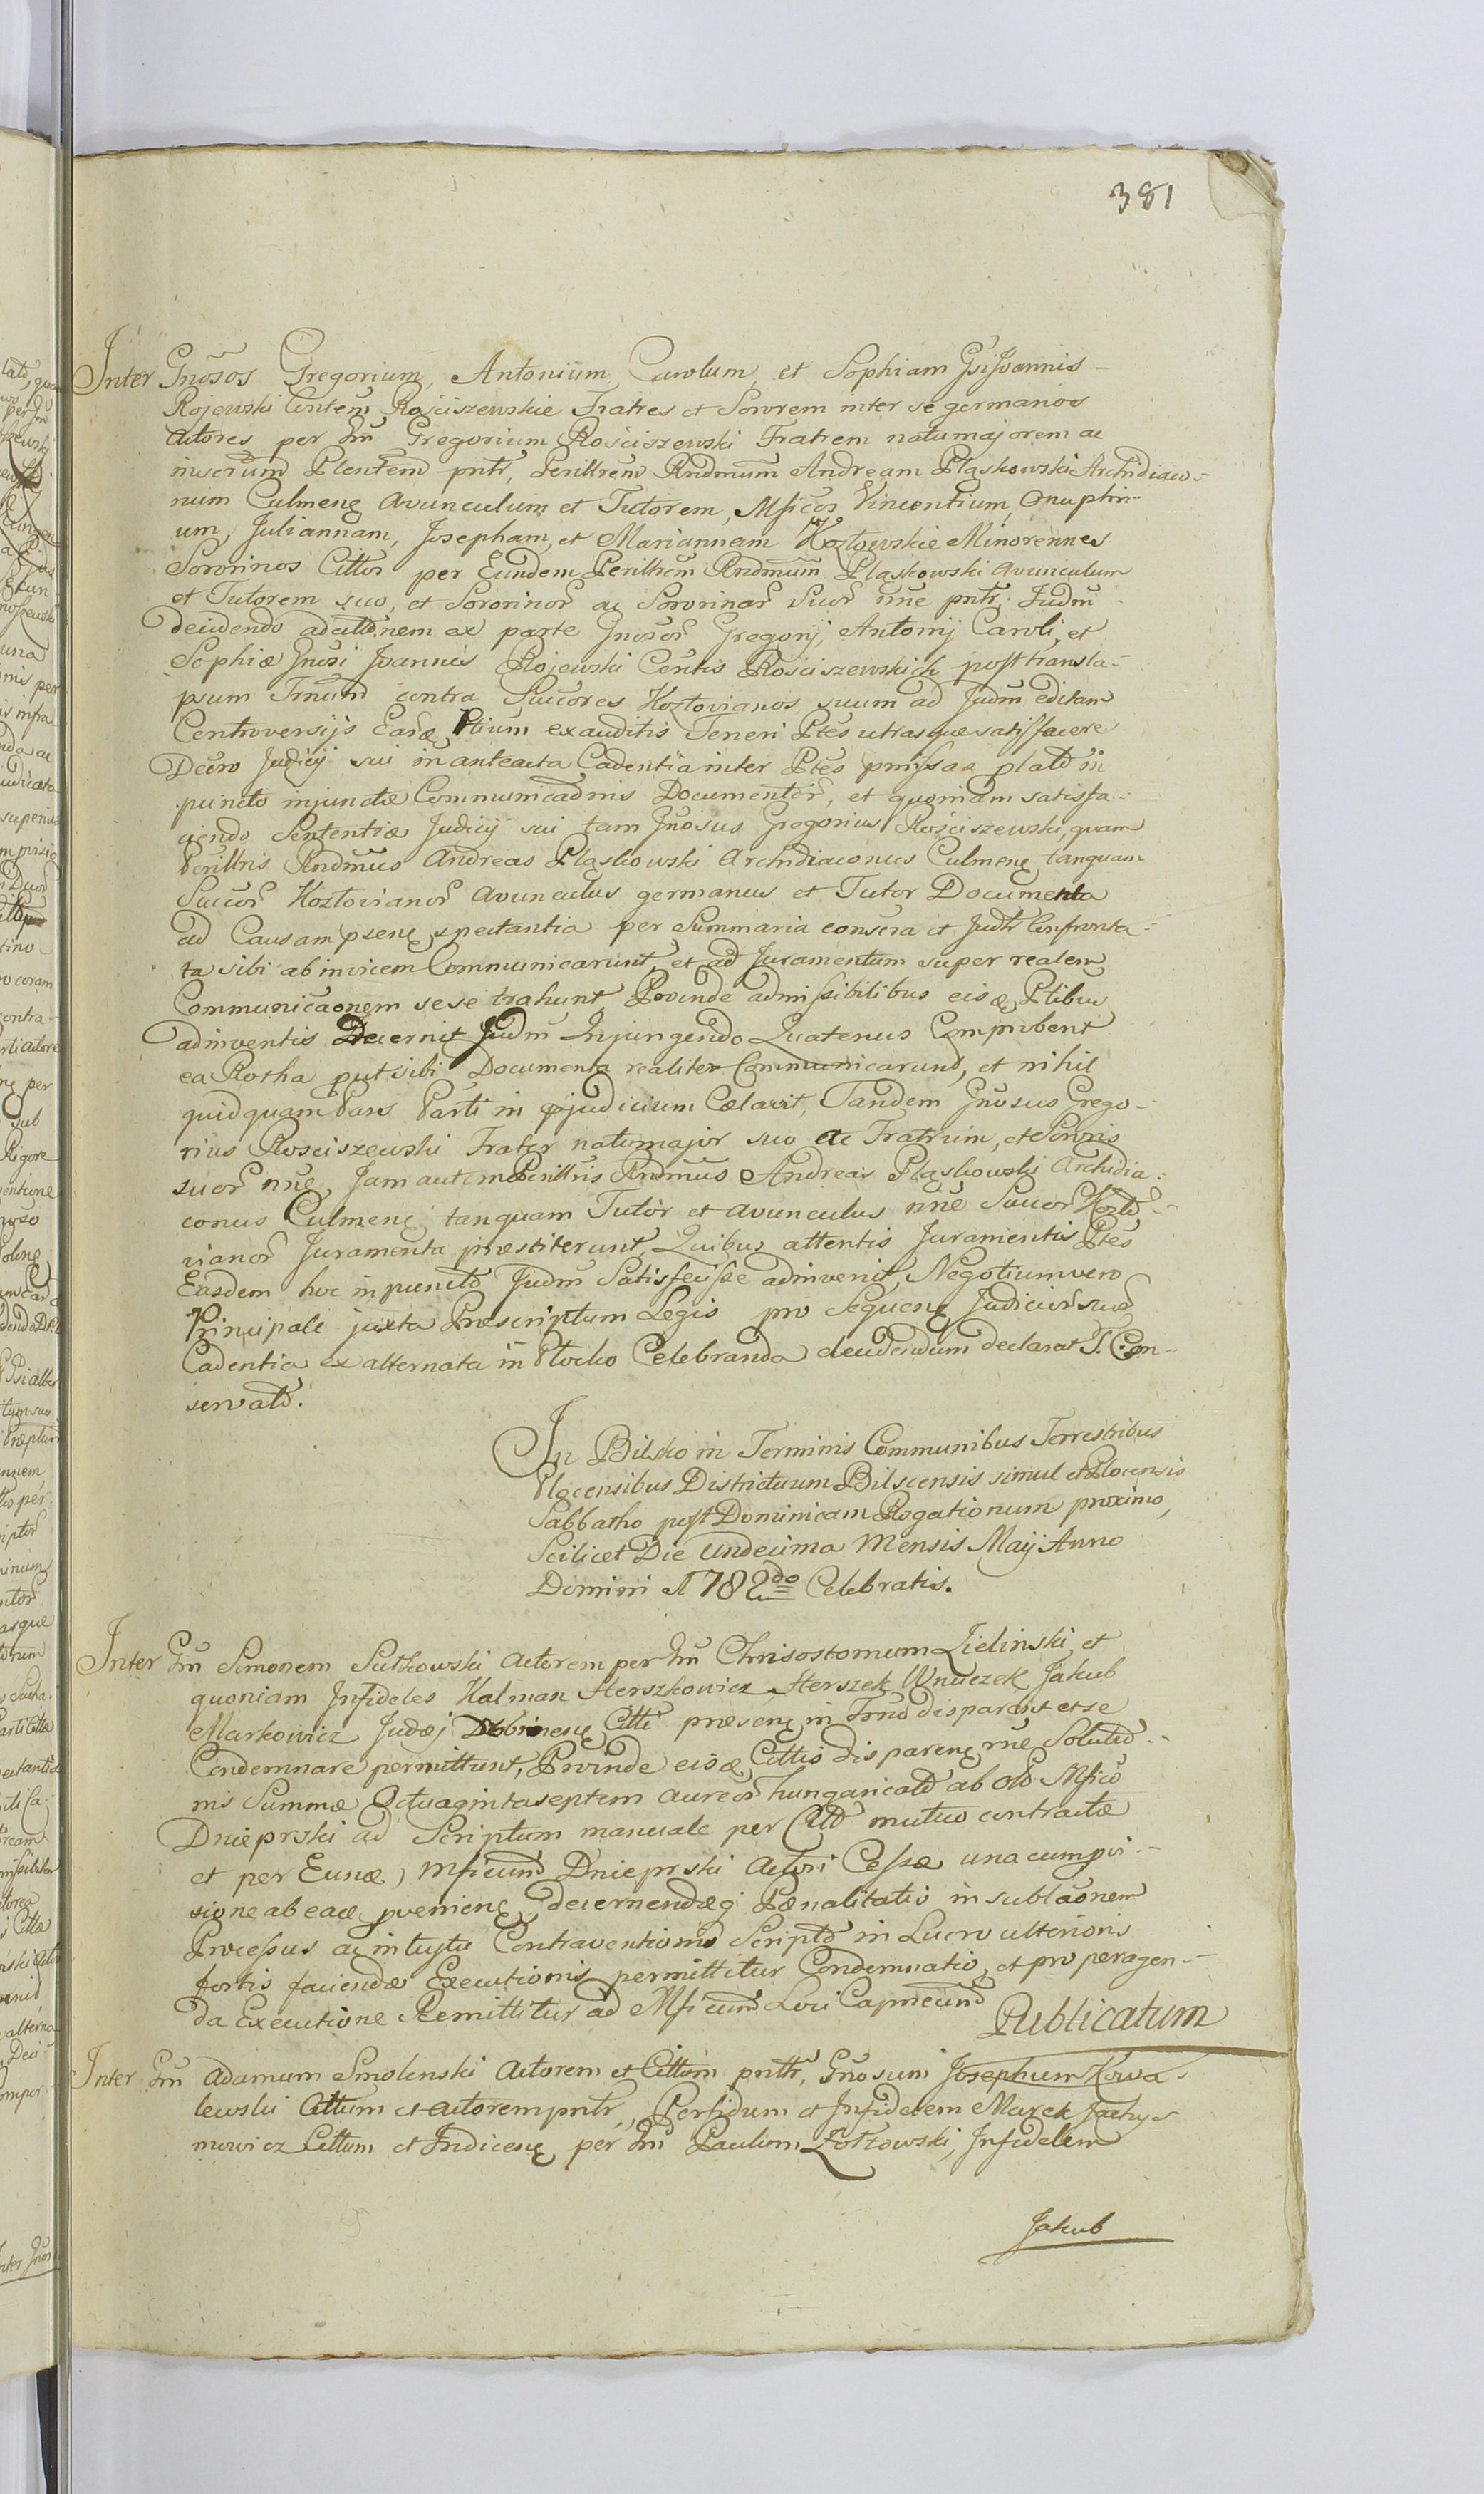 381
Inter Gnosos Gregorium, Antonium, Carolum, et Sophiam Gsi Joannis
Rojewski Contem Rościszewskie Fratres et Sororem inter se germanos
Actores per Gm Gregorium Rościszewski Fratrem natumajorem ac
inscrum Plentem pntr, Perillrem Rndmum Andream Pląskowski Archidiaco-
num Culmenę Avunculum et Tutorem, Mficos Vincentium, Onuphri-
um, Juliannam, Josepham, et Mariannam Kozłowskie Minorennes
Sororinos Cittos per Eundem Perillrem Rndmum Pląskowski avunculum
et Tutorem suo, et Sororinor ac Sororinar Suor nne pntr, Judm
decidendo ad cittonem ex parte Gnosor Gregorij, Antonij Caroli, et
Sophiæ Gnosi Joannis Rojewski Contis Rościszewskich post transla-
psum Trmum contra Succores Kozłovianos suum ad Judm editam
Controversijs Earæ Ptium exauditis Teneri Ptes utrasque satisfacere
Decro Judicij sui in anteacta Cadentia inter Ptes pmissas plato in
puncto injunctæ Communicaonis Documentor, et quoniam satisfa-
ciendo Sententiæ Judicij sui tam Gnosus Gregorius Rościszewski, quam
Perillris Rndmus Andreas Pląskowski Archidiaconus Culmenę tanquam
Succor Kozłovianor avunculus germanus et Tutor Documenta
ad Causam psenę spectantia per Summaria conscra et Judtr Confronta-
ta sibi ab invicem Communicarunt, et ad Juramentum super realem
Communicaonem sese trahunt, Proinde admissibilibus eisæ Ptibus
adinventis Decernit Judm Injungendo Quatenus Comprobent
ea Rotha put sibi Documenta realiter Communicarunt, et nihil
quidquam Pars Parti in pjudicium Cælavit, Tandem Gnosus Grego-
rius Rosciszewski Frater natumajor suo ac Fratrum, et Sororis
suor nne, Jam autem Perillris Rndmus Andreas Pląskowski Archidia-
conus Culmenę tanquam Tutor et avunculus nne Succor Kozło-
vianor Juramenta præstiterunt, Quibus attentis Juramentis Ptes
Easdem hoc in puncto Judm Satisfecisse adinvenit, Negotium vero
Principale juxta Præscriptum Legis pro Sequenę Judicior suor
Cadentia ex alternata in Płocko Celebranda decidendum declarat T. Con-
servato.
In Bilsko in Terminis Communibus Terrestribus
Plocensibus Districtuum Bilscensis simul et Plocensis
Sabbatho post Dominicam Rogationum proximo,
Scilicet Die Undecima Mensis Maij Anno
Domini 1782do Celebratis.
Inter Gm Simonem Sutkowski Actorem per Gm Chrisostomum Zielinski, et
quoniam Infideles Kalman Herszkowicz, Herszek Wnuczek Jakub
Markowicz Judæj Citti præsenę in Trmo disparent et se
Condemnare permittunt, Proinde eisæ Cittis disparenę rne Soluto-
nis Summæ Octuaginta septem aureor hungaricalo ab olo Mfico
Dnieprski ad Scriptum manuale per Citto mutuo contractæ
et per Eunæ Mficum Dnieprski Actori Cessæ una cum pvi-
sione ab eaæ pvenienę decernendæq Pænalitatis in sublaonem
Processus ac intuytu Contraventionis Scripto in Lucro ulterioris
fortis faciendæ Executionis permittitur Condemnatio, et pro peragen-
da Executione Remittitur ad Mficum Loci Capneum
Publicatum
Inter Gm Adamum Smolenski Actorem et Cittum pntr, Gnosum Josephum Kowa-
lewski Cittum et Actorem pntr, Perfidum et Infidelem Marek Jachy-
mowicz Cittum et Indicenę per Gm Paulum Zołtowski, Infidelem
Jakub